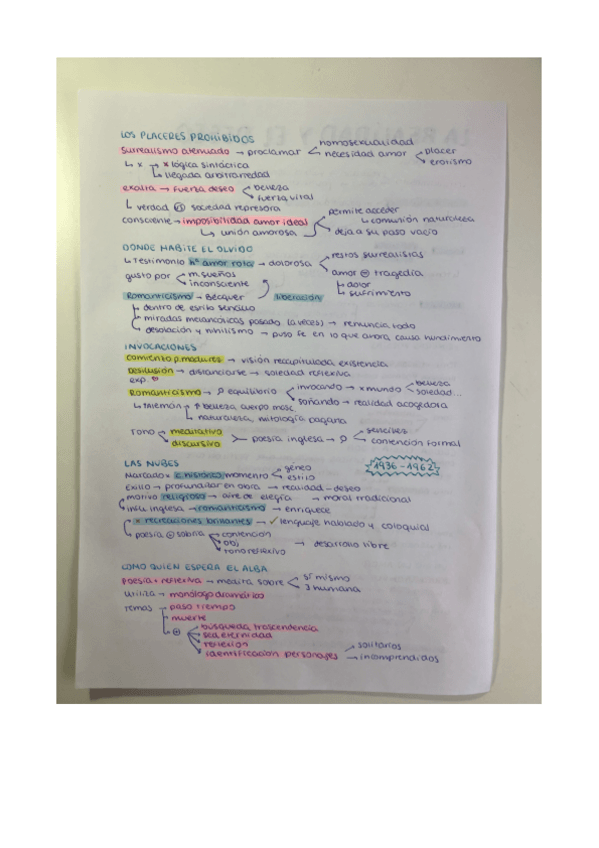 LOS PLACERES PROHIBIDOS
Surrealismo atenuado → proclamar < homosexualidad
necesidad amor < placer
erotismo
↳ x → x lógica sintáctica
↳ llegada arbitrariedad
exalta → fuerza deseo < belleza
fuerza vital
↳ verdad sociedad represora
consciente → imposibilidad amor ideal < permite acceder
↳ comunión naturaleza
↳ unión amorosa deja a su paso vacío
DONDE HABITE EL OLVIDO
↳ Testimonio hª amor rota → dolorosa < restos surrealistas
amor tragedia
↳ dolor
↳ sufrimiento
gusto por < m. sueños
inconsciente
Romanticismo → Bécquer liberación
↳ dentro de estilo sencillo
↳ miradas melancólicas pasado (a veces) → renuncia todo
↳ desolación y nihilismo → puso fe en lo que ahora causa hundimiento
INVOCACIONES
comienzo p. madurez → visión recapitulada existencia
Desilusión → distanciarse → soledad reflexiva
exp.
Romanticismo → equilibrio < invocando → x mundo < belleza
soledad...
soñando → realidad acogedora
↳ Alemán → belleza cuerpo masc.
↳ naturaleza, mitología pagana
Tono < meditativo
discursivo > poesía inglesa → < sencillez
contención formal
LAS NUBES
1936-1962
Marcado x c. histórico momento < género
estilo
Exilio → profundizar en obra → realidad-deseo
motivo religioso → aire de elegía → moral tradicional
influ. inglesa → romanticismo → enriquece
x recreaciones brillantes → ✓ lenguaje hablado y coloquial
↳ poesía sobria < contención
obj.
tono reflexivo → desarrollo libre
COMO QUIEN ESPERA EL ALBA
Poesía + reflexiva → medita sobre < sí mismo
∃ humana
Utiliza → monólogo dramático
Temas → paso tiempo
muerte
búsqueda trascendencia
sed eternidad
reflexión
identificación personajes < solitarios
incomprendidos